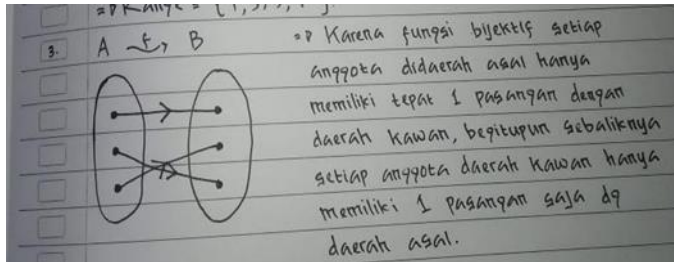 3. A f B
=> Karena fungsi bijektif setiap
anggota didaerah asal hanya
memiliki tepat 1 pasangan dengan
daerah kawan, begitupun sebaliknya
setiap anggota daerah kawan hanya
memiliki 1 pasangan saja dg
daerah asal.